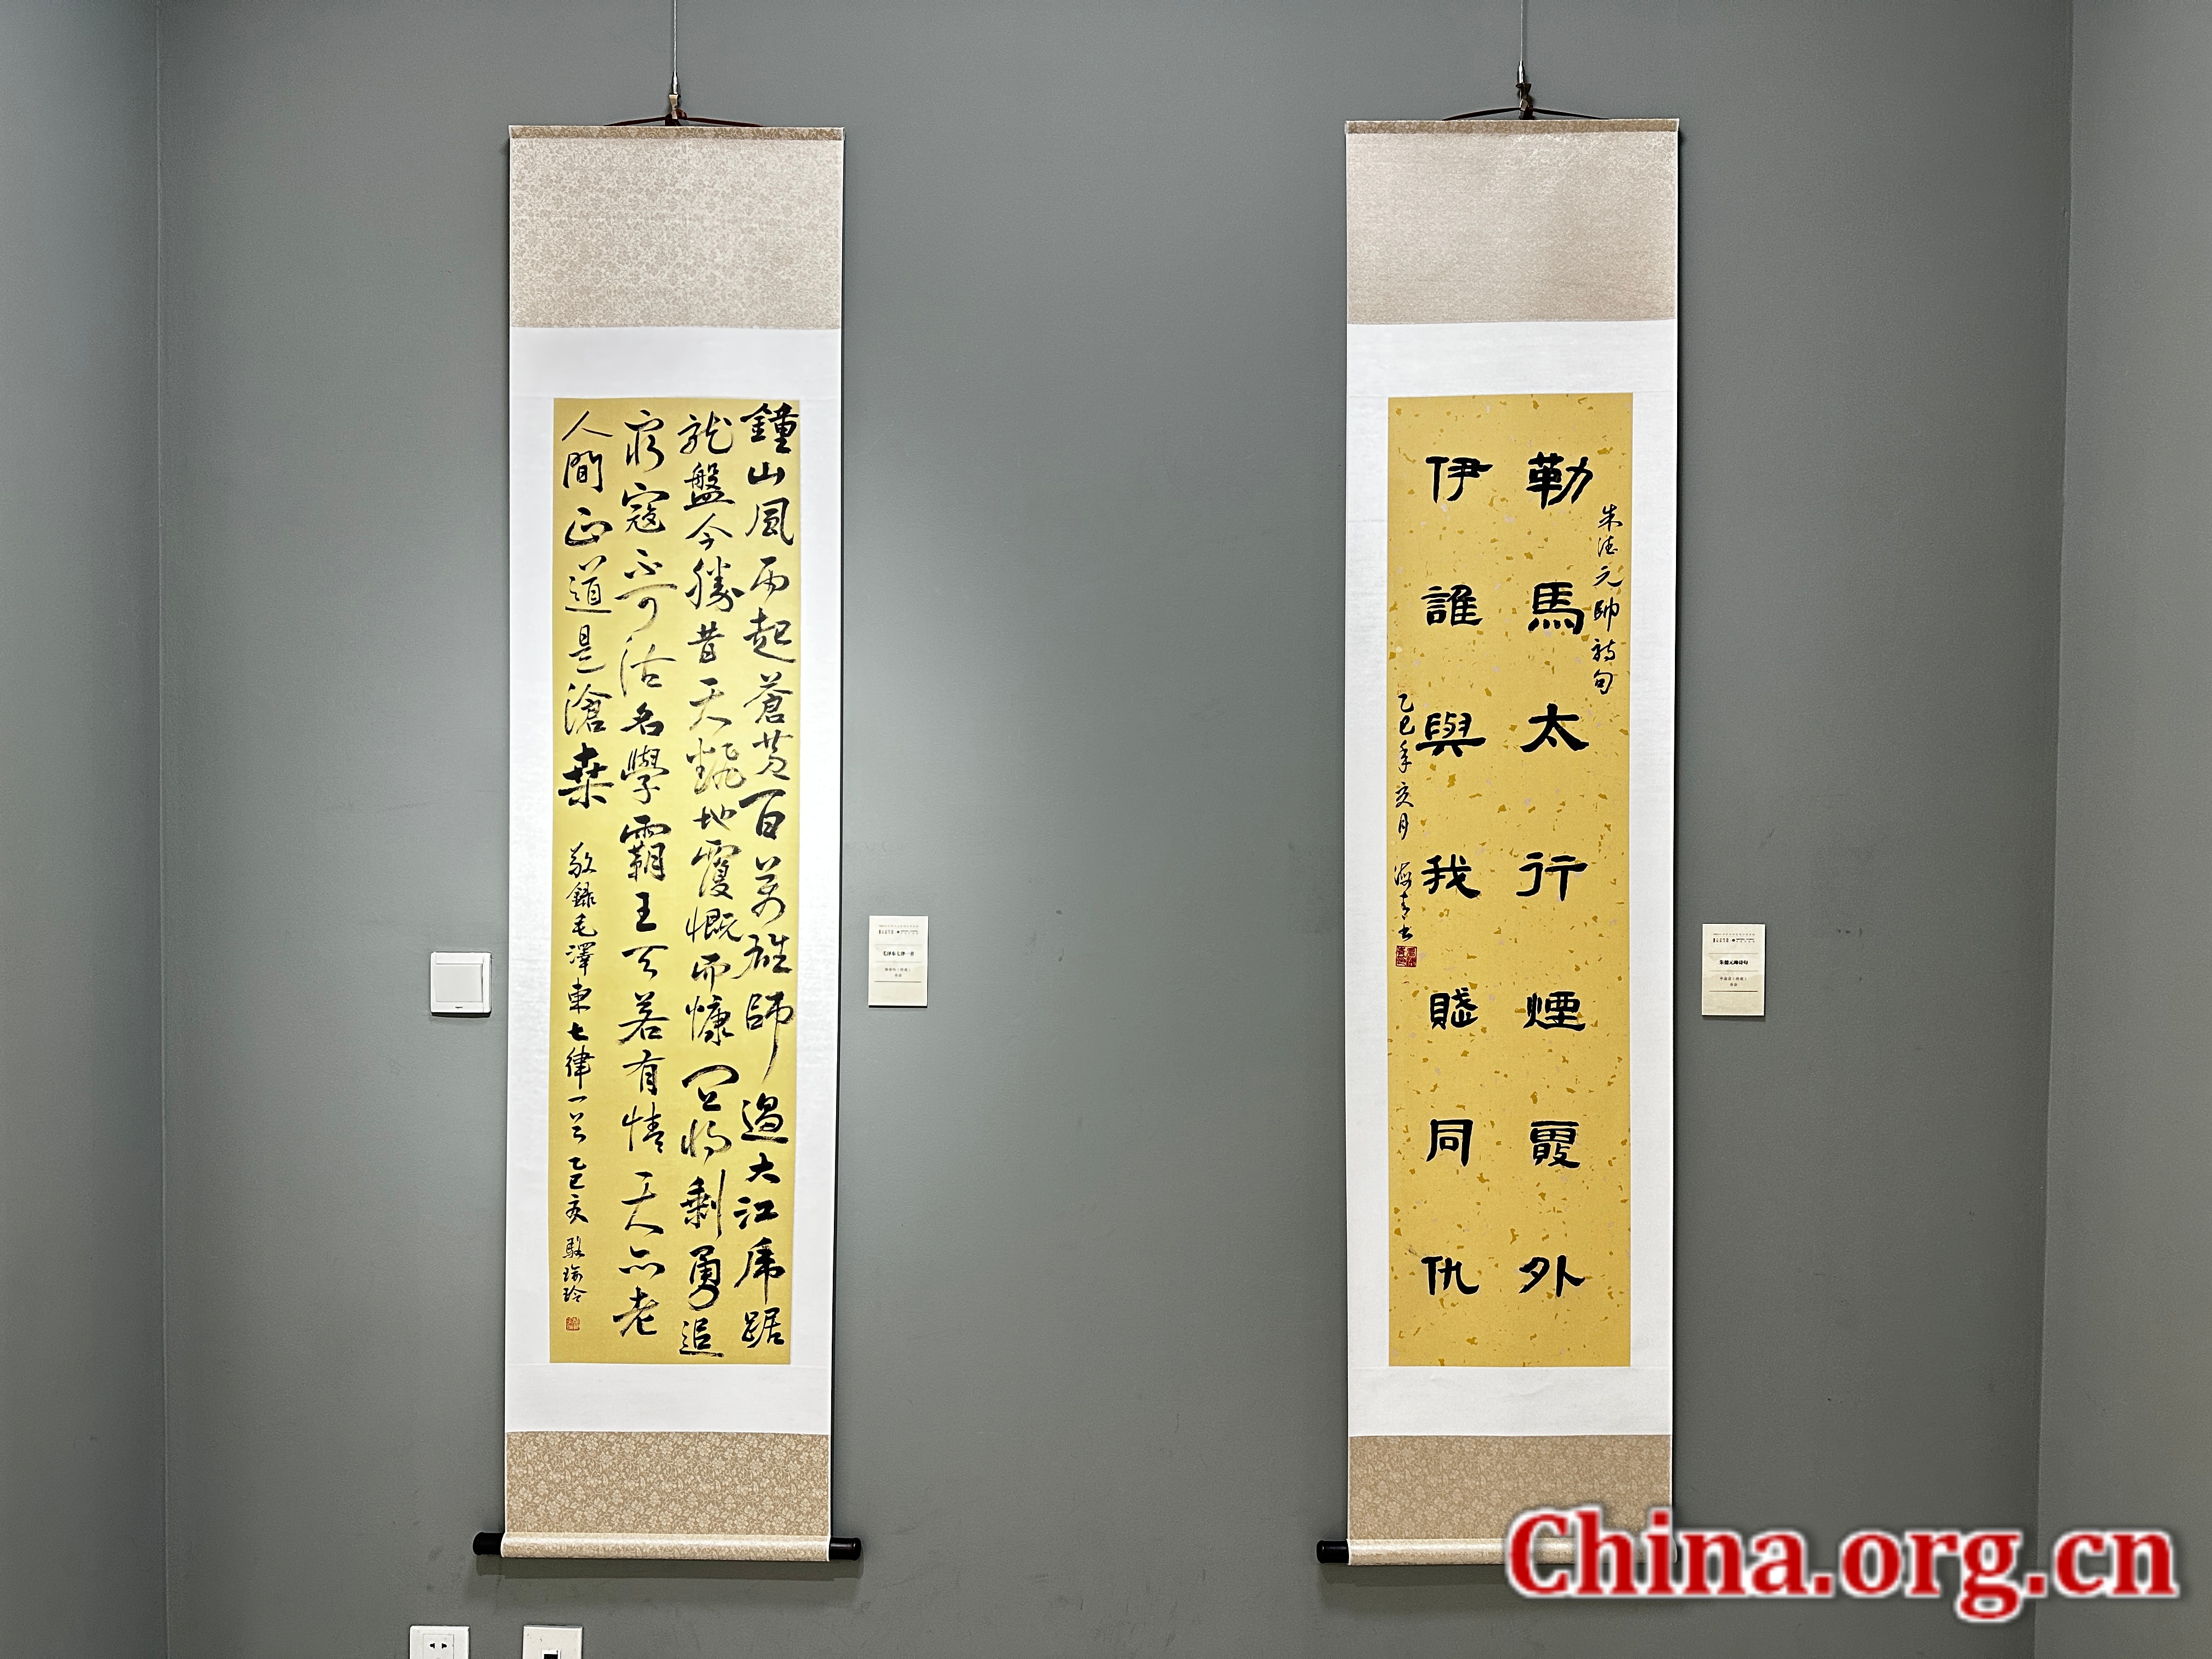 鐘山風雨起蒼黄百萬雄師過大江虎踞
龍盤今勝昔天翻地覆慨而慷宜將剩勇追
窮寇不可沽名學霸王天若有情天亦老
人間正道是滄桑 敬錄毛澤東七律一首 乙巳亥 駱瑜玲
毛泽东七律一首
朱德元帥詩句
勒馬太行煙霞外
伊誰與我賦同仇
乙巳年亥月 海青書
朱德元帅诗句
China.org.cn